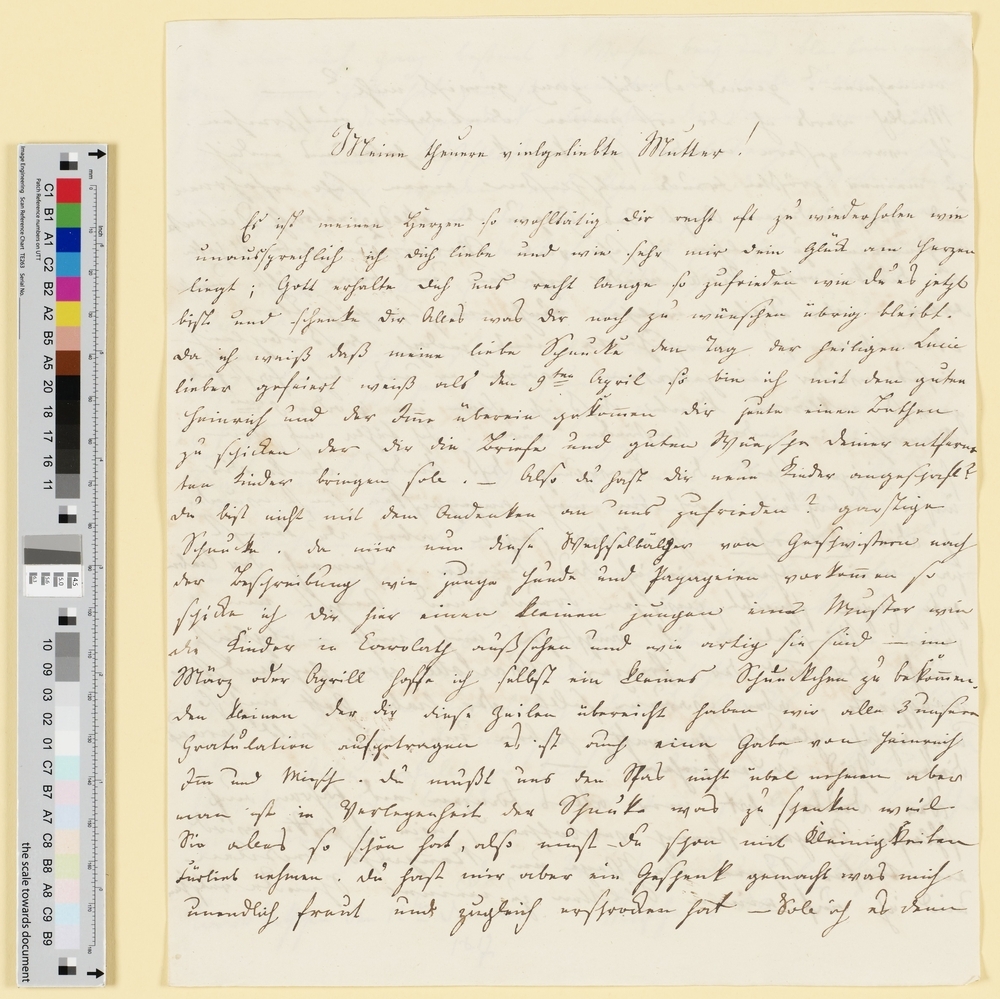 Meine theuere vielgeliebte Mutter!
Es ist meinen Herzen so wohltätig dir recht oft zu wiederholen wie
unaussprechlich ich dich liebe und wie sehr mir dein Glük am Herzen
liegt; Gott erhalte dich uns recht lange so zufrieden wie du es jetzt
bist und schenke dir Alles was dir noch zu wünschen übrig bleibt.
Da ich weiß daß meine liebe Schnucke den Tag der heiligen Lucie
lieber gefeiert weiß als den 9ten April so bin ich mit dem guten
Heinrich und der Imme überein gekommen dir heute einen Bothen
zu schicken der dir die Briefe und guten Wünsche deiner entfern
ten Kinder bringen sole. — Also du hast dir neue Kinder angeschaft?
du bist nicht mit dem Andenken an uns zufrieden? garstige
Schnucke. da mir nun diese Wechselbälger von Geschwistern nach
der Beschreibung wie junge Hunde und Papageien vorkommen so
schicke ich dir hier einen kleinen jungen zum Muster wie
die Kinder in Carolath aussehen und wie artig sie sind — im
März oder Aprill hoffe ich selbst ein kleines Schnuckchen zu bekommen.
den kleinen der dir diese Zeilen übereicht haben wir alle 3 unsere
Gratulation aufgetragen es ist auch eine Gabe von Heinrich
Imm und Minsch. du mußt uns den Spas nicht übel nehmen aber
man ist in Verlegenheit der Schnucke was zu schenken weil
Sie alles so schön hat, also must du schon mit Kleinigkeiten
fürlieb nehmen. Du hast mir aber ein Geschenk gemacht was mich
unendlich freut und zugleich erschrocken hat — Sole ich es denn